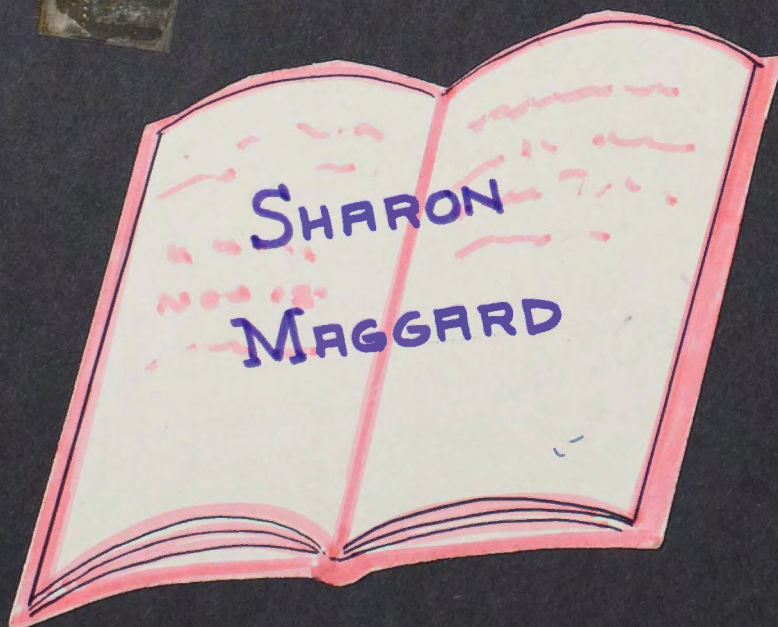 SHARON
MAGGARD